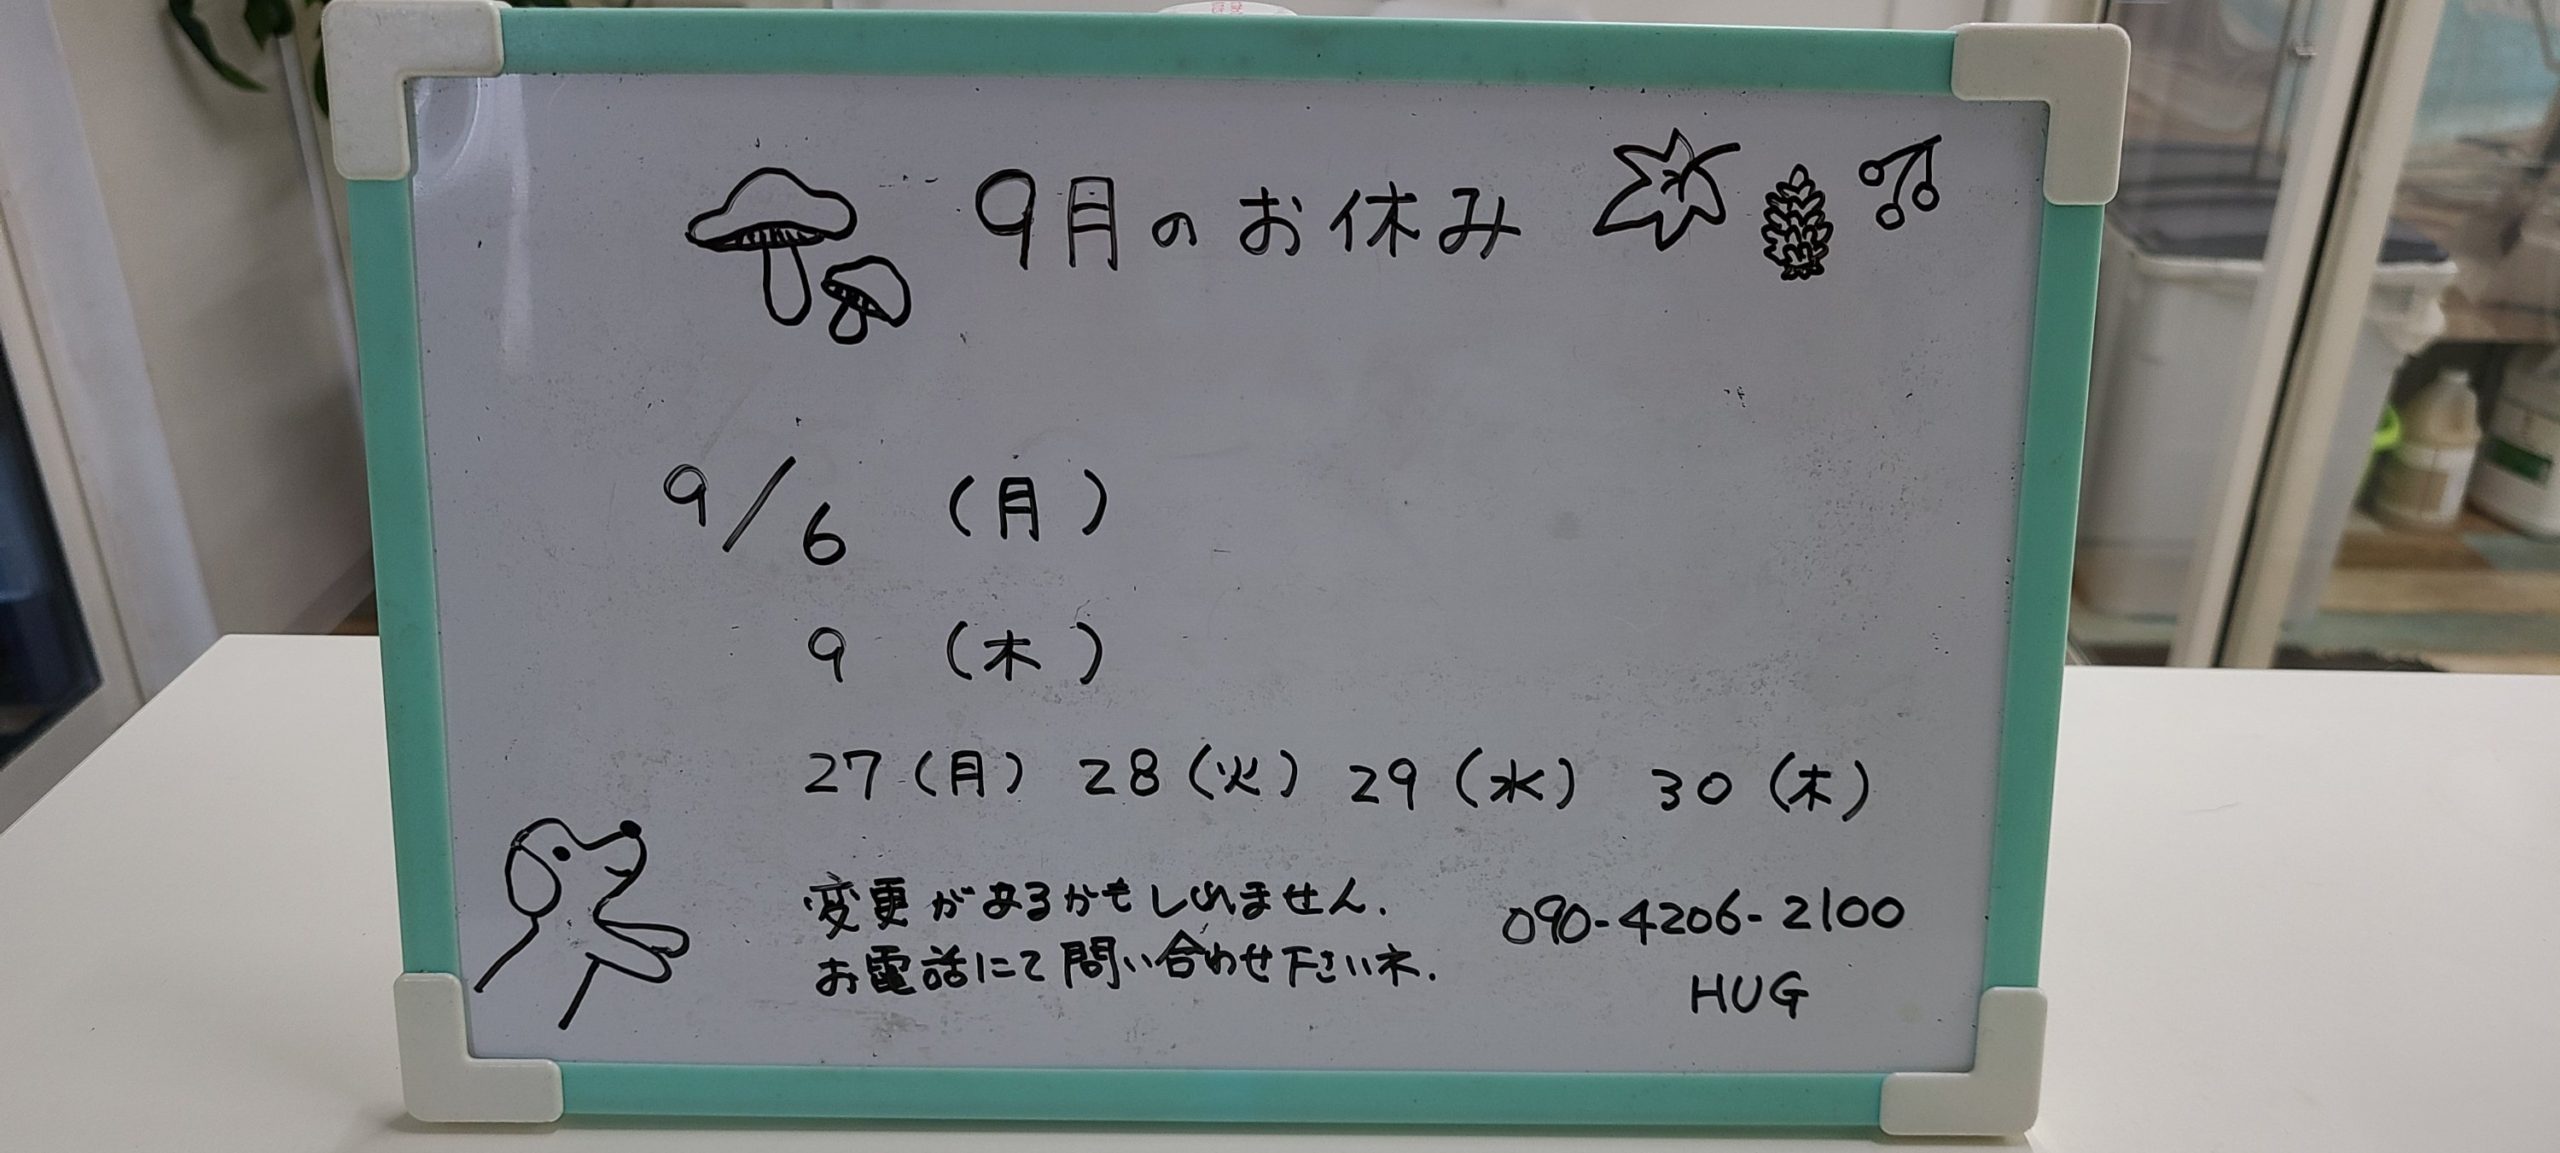 9月のお休み
9/6 (月)
9 (木)
27(月) 28(火) 29(水) 30(木)
変更があるかもしれません.
お電話にて問い合わせ下さいネ.
090-4206-2100
HUG